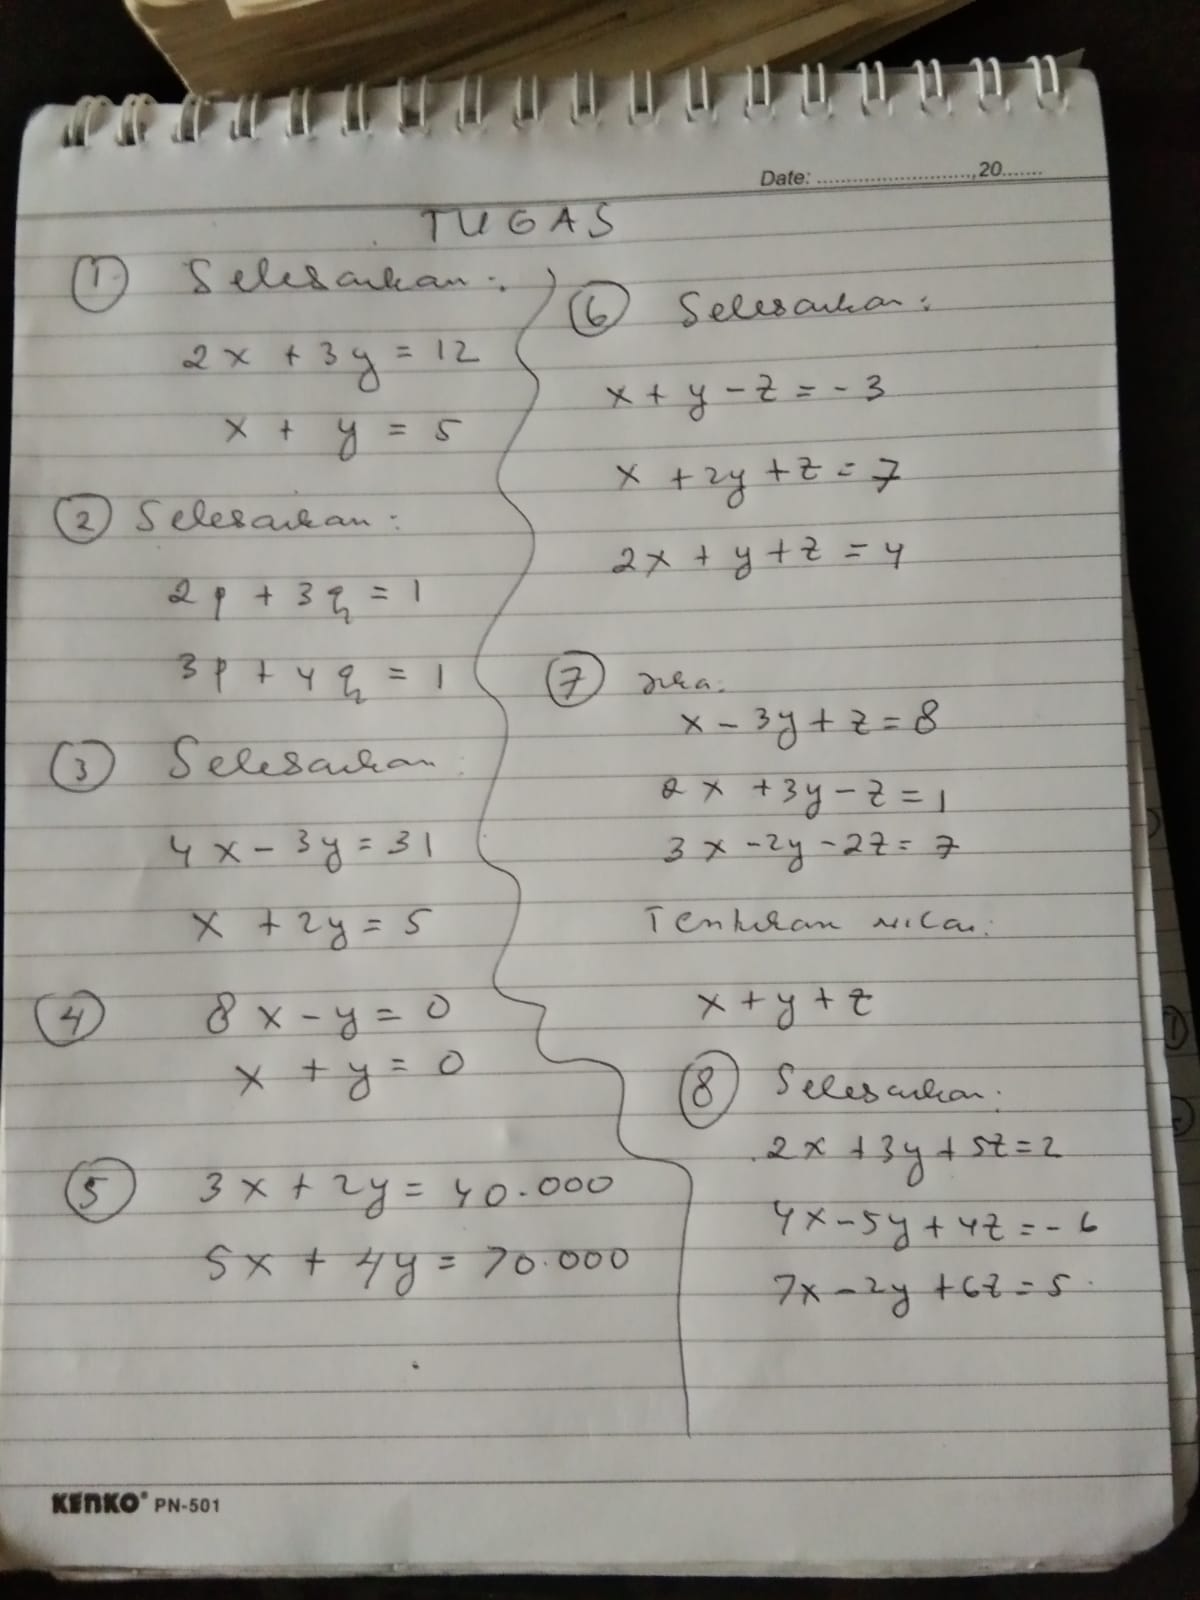 Date: ........................., 20.......
TUGAS
① Selesaikan :
2x + 3y = 12
x + y = 5
② Selesaikan :
2p + 3q = 1
3p + 4q = 1
③ Selesaikan :
4x - 3y = 31
x + 2y = 5
④ 8x - y = 0
x + y = 0
⑤ 3x + 2y = 40.000
5x + 4y = 70.000
⑥ Selesaikan :
x + y - z = - 3
x + 2y + z = 7
2x + y + z = 4
⑦ Jika :
x - 3y + z = 8
2x + 3y - z = 1
3x - 2y - 2z = 7
Tentukan nilai :
x + y + z
⑧ Selesaikan :
2x + 3y + 5z = 2
4x - 5y + 4z = - 6
7x - 2y + 6z = 5
KENKO® PN-501